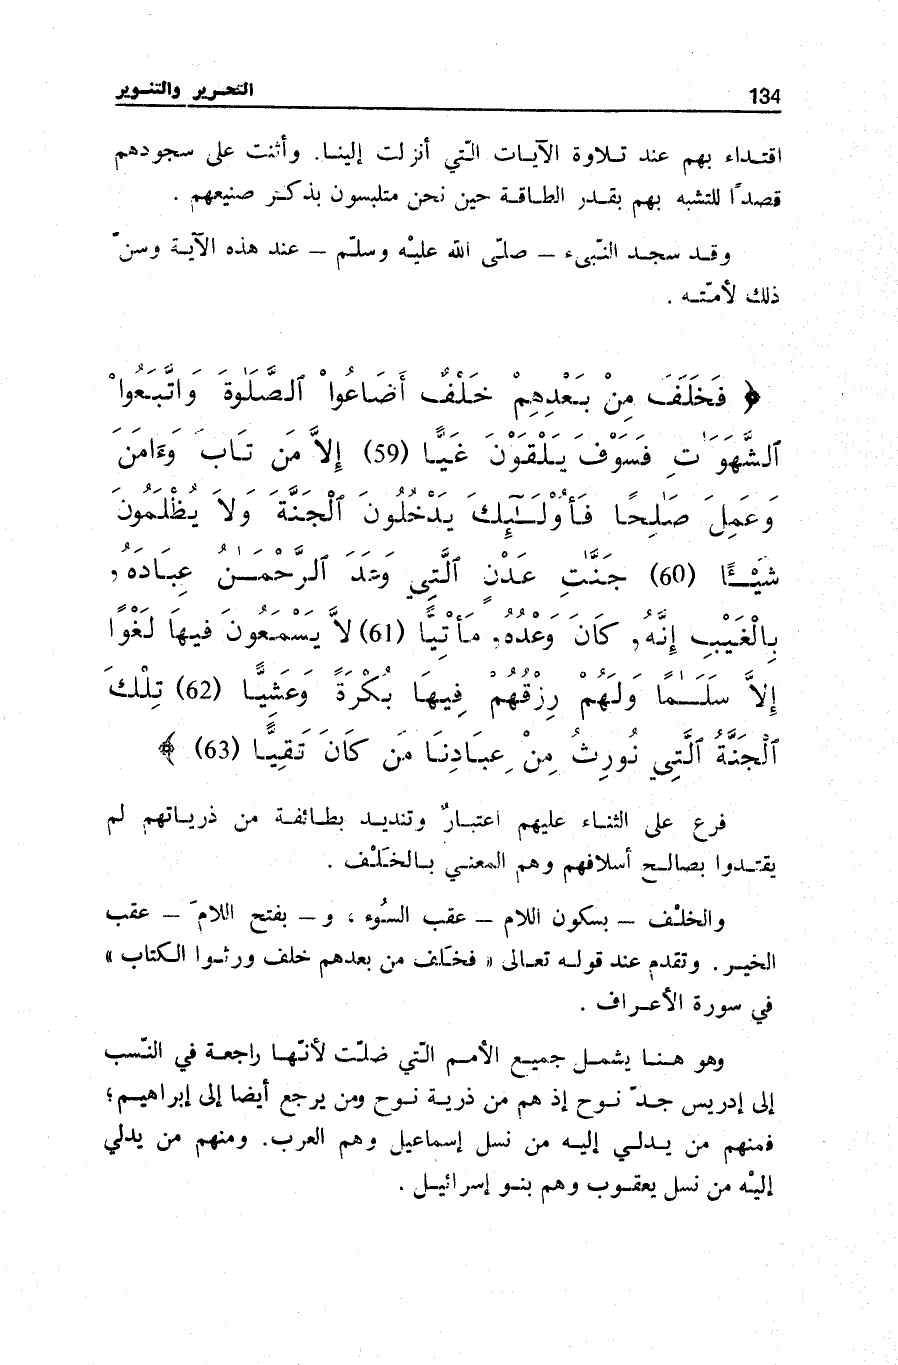 134 التحرير والتنوير
اقتداء بهم عند تلاوة الآيات التّي أنزلت إلينا. وأثنت على سجودهم
قصدًا للتشبه بهم بقدر الطاقة حين نحن متلبسون بذكر صنيعهم .
وقد سجد النّبيء – صلّى الله عليْه وسلّم – عند هذه الآية وسنّ
ذلك لأمّته .
﴿ فَخَلَفَ مِنْ بَعْدِهِمْ خَلْفٌ أَضَاعُواْ ٱلصَّلَوٰةَ وَاتَّبَعُواْ
ٱلشَّهَوَٰتِ فَسَوْفَ يَلْقَوْنَ غَيًّا (59) إِلاَّ مَن تَابَ وَءَامَنَ
وَعَمِلَ صَٰلِحًا فَأُوْلَـٰٓئِكَ يَدْخُلُونَ ٱلْجَنَّةَ وَلاَ يُظْلَمُونَ
شَيْـًٔا (60) جَنَّٰتِ عَدْنٍ ٱلَّتِي وَعَدَ ٱلرَّحْمَـٰنُ عِبَادَهُۥ
بِالْغَيْبِ إِنَّهُۥ كَانَ وَعْدُهُۥ مَأْتِيًّا (61) لاَّ يَسْمَعُونَ فِيهَا لَغْوًا
إِلاَّ سَلَـٰمًا وَلَهُمْ رِزْقُهُمْ فِيهَا بُكْرَةً وَعَشِيًّا (62) تِلْكَ
ٱلْجَنَّةُ ٱلَّتِي نُورِثُ مِنْ عِبَادِنَا مَن كَانَ تَقِيًّا (63) ﴾
فرع على الثناء عليهم اعتبارٌ وتنديد بطائفة من ذرياتهم لم
يقتدوا بصالح أسلافهم وهم المعني بالخَلْف .
والخلْف – بسكون اللام – عقب السُوء ، و – بفتح اللامَ – عقب
الخير . وتقدم عند قوله تعالى « فخلَف من بعدهم خلف ورثوا الكتاب »
في سورة الأعراف .
وهو هنا يشمل جميع الأمم التّي ضلّت لأنّها راجعة في النّسب
إلى إدريس جدّ نوح إذ هم من ذرية نوح ومن يرجع أيضا إلى إبراهيم؛
فمنهم من يدلي إليه من نسل إسماعيل وهم العرب. ومنهم من يدلي
إليْه من نسل يعقوب وهم بنو إسرائيل .